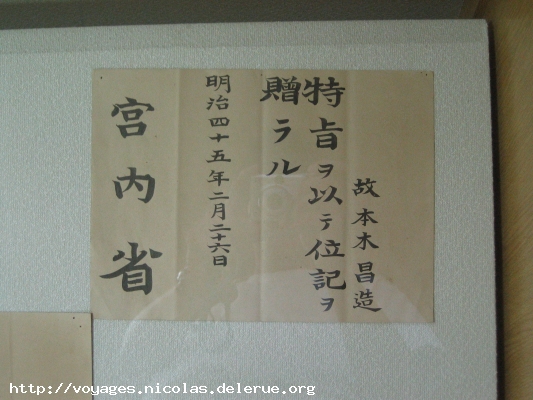 故本木昌造
特旨ヲ以テ位記ヲ
贈ラル
明治四十五年二月二十六日
宮内省
http://voyages.nicolas.delerue.org